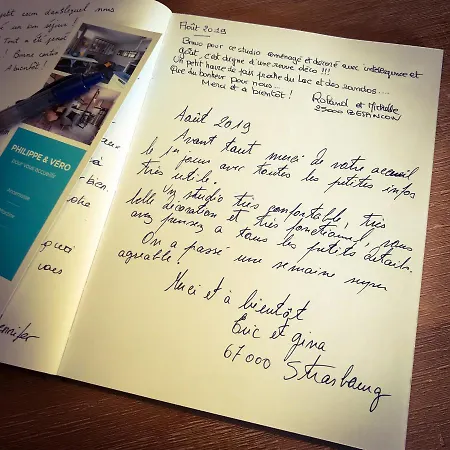 petit coin dans lequel nous
Tout a été pensé
! Bonne conti
A bientôt !
PHILIPPE & VÉRO
pour vous accueillir
-bien.
vous
Jennifer
Août 2019
Bravo pour ce studio aménagé et décoré avec intelligence et
goût, c'est digne d'une revue déco !!!
Un petit havre de paix proche du Lac et des randos....
Que du bonheur pour nous...
Merci et à bientôt !
Roland et Michelle
25000 BESANCON
Août 2019
Avant tout merci de votre accueil
le jour avec toutes les petites infos
très utile.
Un studio très confortable, très
belle décoration et très fonctionnel, vous
avez pensez a tous les petits détails.
On a passé une semaine super
agréable !
Merci et à bientôt
Eric et Gina
67000 Strasbourg